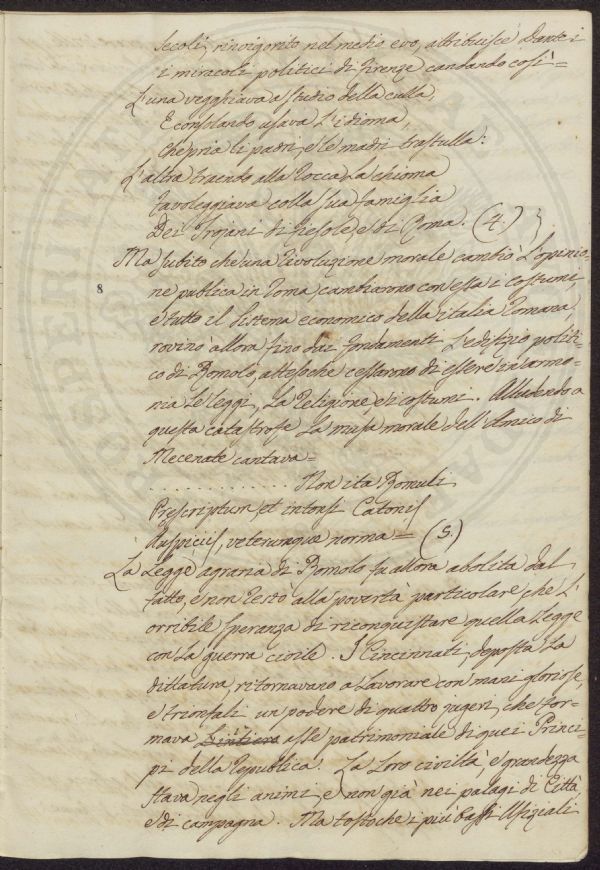 secoli, rinvigorito nel medio evo, attribuisce Dante i
i miracoli politici di Firenze cantando così =
L'una vegghiava a studio della culla,
E consolando usava l'idioma,
Che pria li padri, e le madri trastulla:
L'altra traendo alla rocca la chioma
Favoleggiava colla sua famiglia
Dei Trojani di Fiesole, e di Roma. (4.)
Ma subito che una rivoluzione morale cambiò l'opinio-
8
ne publica in Roma, cambiarono con essa i costumi,
e tutto il sistema economico della italia Romana,
rovinò allora fino dai fondamenti l'edifizio politi-
co di Romolo, attesoche cessarono di essere in armo-
nia le leggi, la religione, e i costumi. Alludendo a
questa catastrofe la musa morale dell'Amico di
Mecenate cantava =
. . . . . . . . . . . . . . Non ita Romuli
Prescriptum, et intonsi Catonis
Auspiciis, veterumque norma = (5.)
La Legge agraria di Romolo fu allora abolita dal
fatto, e non restò alla povertà particolare che l'
orribile speranza di riconquistare quella Legge
con la guerra civile. I Cincinnati, deposta la
dittatura, ritornavano a lavorare con mani gloriose,
e trionfali un podere di quattro jugeri, che for-
mava asse patrimoniale di quei Princi-
pi della republica. La loro civiltà, e grandezza
stava negli animi, e non già nei palagi di Città,
e di campagna. Ma tostoche i più bassi Ufiziali